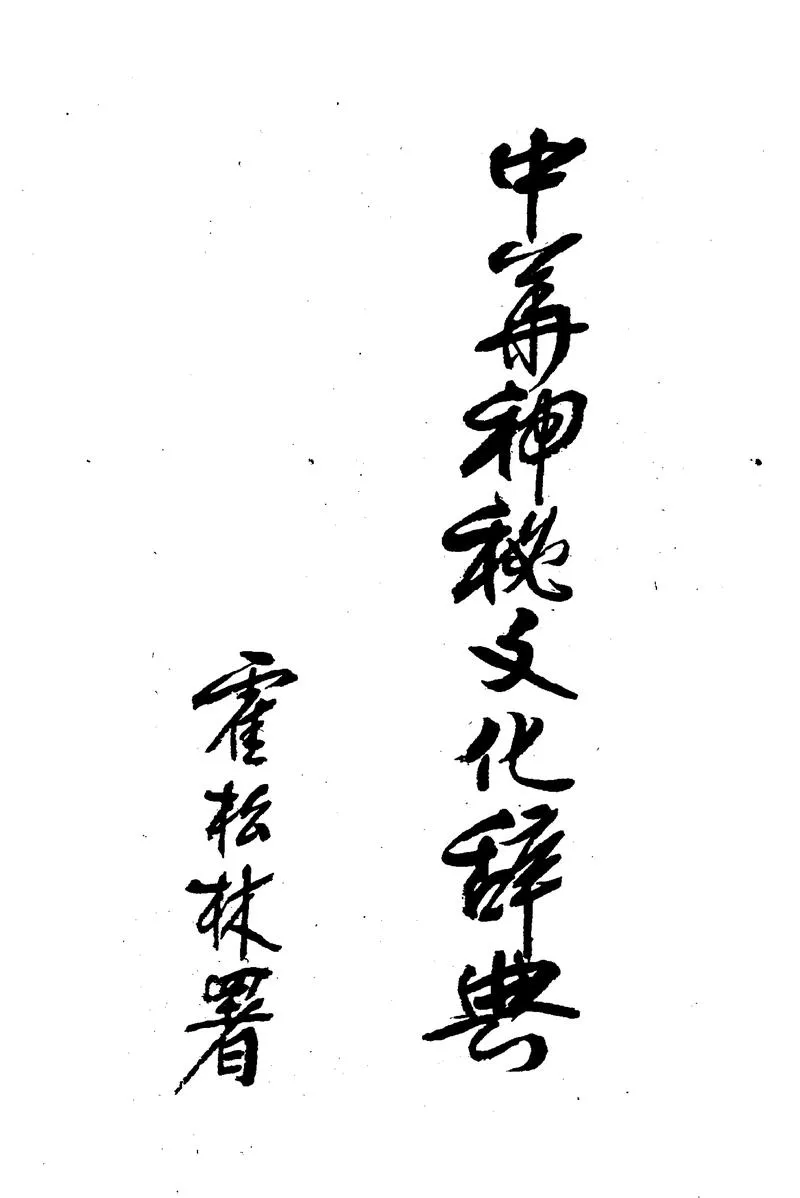 中华神秘文化辞典
霍松林署